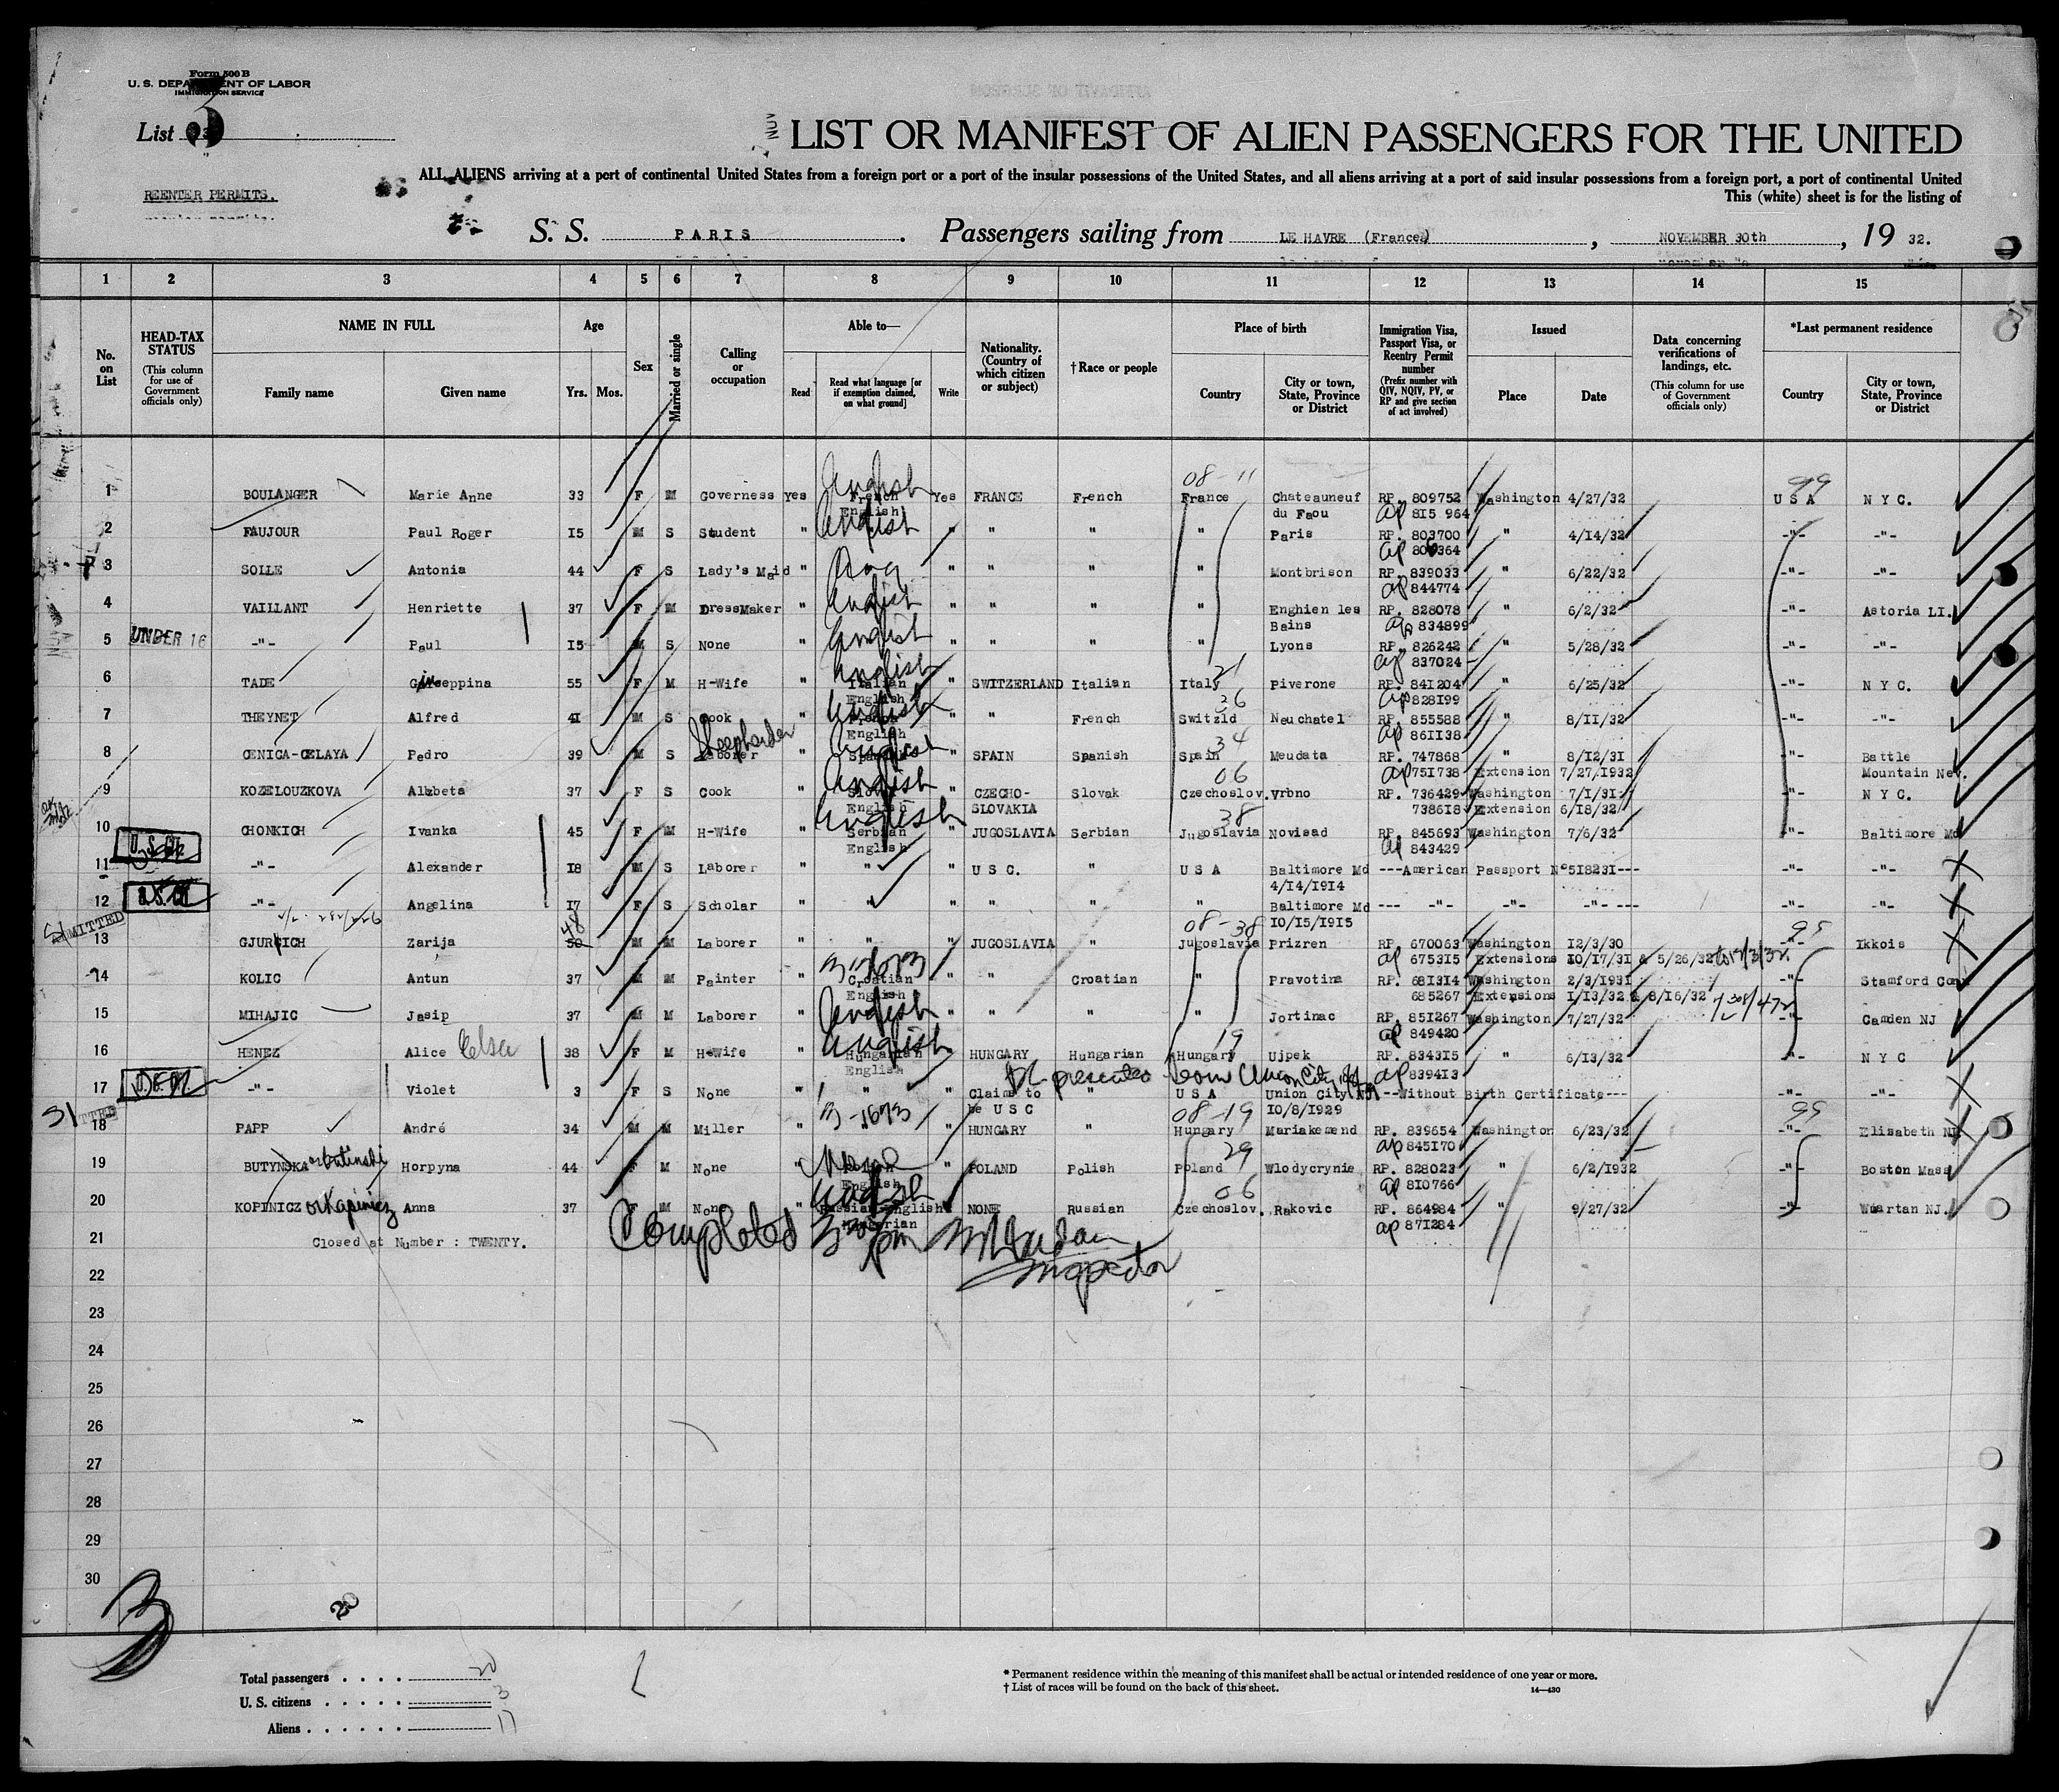 Form 500 B
U. S. DEPARTMENT OF LABOR
IMMIGRATION SERVICE
List 3
REENTER PERMITS.
LIST OR MANIFEST OF ALIEN PASSENGERS FOR THE UNITED
ALL ALIENS arriving at a port of continental United States from a foreign port or a port of the insular possessions of the United States, and all aliens arriving at a port of said insular possessions from a foreign port, a port of continental United
This (white) sheet is for the listing of
S. S. PARIS. Passengers sailing from LE HAVRE (France), NOVEMBER 30th, 19 32.
1 2 3 4 5 6 7 8 9 10 11 12 13 14 15
No. on List
HEAD-TAX STATUS
(This column for use of Government officials only)
NAME IN FULL
Family name Given name
Age
Yrs. Mos.
Sex
Married or single
Calling or occupation
Able to—
Read
Read what language [or if exemption claimed, on what ground]
Write
Nationality. (Country of which citizen or subject)
†Race or people
Place of birth
Country
City or town, State, Province or District
Immigration Visa, Passport Visa, or Reentry Permit number
(Prefix number with QIV, NQIV, PV, or RP and give section of act involved)
Issued
Place Date
Data concerning verifications of landings, etc.
(This column for use of Government officials only)
*Last permanent residence
Country
City or town, State, Province or District
08-11 99
1 BOULANGER Marie Anne 33 F M Governess Yes French English Yes FRANCE French France Chateauneuf RP. 809752 Washington 4/27/32 USA N Y C.
English du Faou ap 815 964
2 FAUJOUR Paul Roger 15 M S Student " English " " " " Paris RP. 803700 " 4/14/32 -"- -"-
ap 806364
3 SOLLE Antonia 44 F S Lady's Maid " " " " " Montbrison RP. 839033 " 6/22/32 -"- -"-
ap 844774
4 VAILLANT Henriette 37 F M DressMaker " English " " " " Enghien les RP. 828078 " 6/2/32 -"- Astoria LI.
Bains ap 834899
5 UNDER 16 -"- Paul 15 M S None " English " " " " Lyons RP. 826242 " 5/28/32 -"- -"-
ap 837024
21
6 TADE Giuseppina 55 F M H-Wife " Italian English " SWITZERLAND Italian Italy Piverone RP. 841204 " 6/25/32 -"- N Y C.
English ap 828199
26
7 THEYNET Alfred 41 M S Cook " English " " French Switzld Neuchatel RP. 855588 " 8/11/32 -"- -"-
English ap 861138
34
8 CENICA-CELAYA Pedro 39 M S Laborer Sheepherder " Spanish English " SPAIN Spanish Spain Meudata RP. 747868 " 8/12/31 -"- Battle
ap 751738 Extension 7/27/1932 Mountain Nev.
06
9 KOZELOUZKOVA Alzbeta 37 F S Cook " Slovak English " CZECHO- Slovak Czechoslov. Vrbno RP. 736429 Washington 7/1/31 -"- N Y C.
English SLOVAKIA 738618 Extension 6/18/32
38
10 CHONKICH Ivanka 45 F M H-Wife " Serbian English " JUGOSLAVIA Serbian Jugoslavia Novisad RP. 845693 Washington 7/6/32 -"- Baltimore Md
English ap 843429
U.S.C.
11 -"- Alexander 18 M S Laborer " " " U S C. " U S A Baltimore Md ---American Passport N°518231--- -"- -"-
4/14/1914
12 -"- Angelina 17 F S Scholar " " " " " " Baltimore Md --- -"- -"- -"- --- -"- -"-
10/15/1915
ADMITTED 48 08-38 99
13 GJURGICH Zarija 50 M M Laborer " " " JUGOSLAVIA " Jugoslavia Prizren RP 670063 Washington 12/3/30 -"- Ikkois
ap 675315 Extensions 10/17/31 & 5/26/32 to 12/3/32
14 KOLIC Antun 37 M M Painter " Croatian " " Croatian " Pravotina RP. 681314 Washington 2/3/1931 -"- Stamford Con
English 685267 Extensions 1/13/32 & 8/16/32
15 MIHAJIC Jasip 37 M M Laborer " English " " " " Jortinac RP. 851267 Washington 7/27/32 -"- Camden NJ
ap 849420
19
16 HENEZ Alice Elsa 38 F M H-Wife " Hungarian English " HUNGARY Hungarian Hungary Ujpek RP. 834315 " 6/13/32 -"- N Y C
English ap 839413
presented born Union City
17 -"- Violet 3 F S None " " " Claims to " U S A Union City NJ --Without Birth Certificate--- -"- -"-
be U S C 10/8/1929
08-19 99
18 PAPP André 34 M M Miller " " " HUNGARY " Hungary Mariakemend RP. 839654 Washington 6/23/32 -"- Elizabeth NJ
ap 845170
29
19 BUTYNSKA or Butinski Horpyna 44 F M None " None " POLAND Polish Poland Wlodycrynie RP. 828023 " 6/2/1932 -"- Boston Mass
English ap 810766
06
20 KOPINICZ or Kapinicz Anna 37 F M None " English Russian English " NONE Russian Czechoslov. Rakovic RP. 864984 " 9/27/32 -"- Wuartan NJ.
Hungarian ap 871284
21 Closed at Number : TWENTY.
Completed pm
Inspector
22
23
24
25
26
27
28
29
30
3
20
Total passengers . . . . 20
U. S. citizens . . . . . 3
Aliens . . . . . . 17
* Permanent residence within the meaning of this manifest shall be actual or intended residence of one year or more.
† List of races will be found on the back of this sheet.
14—430